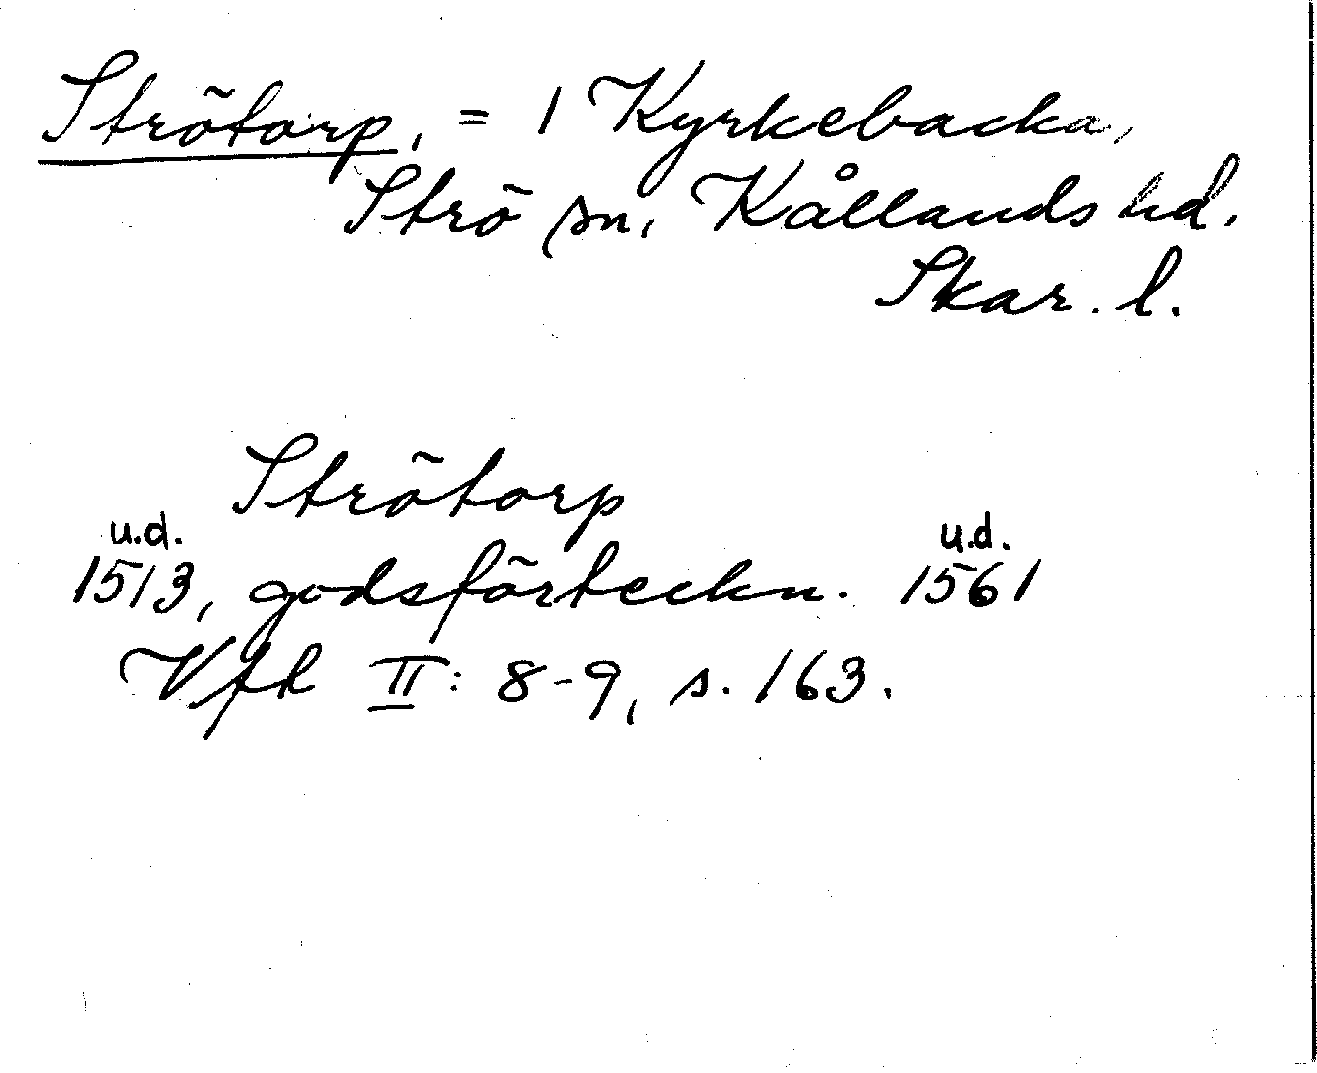 Strötorp, = 1 Kyrkebacka,
Strö sn, Kållands hd.
Skar. l.
Strötorp
u.d. u.d.
1513, godsförteckn. 1561
Vfk II: 8-9, s. 163.